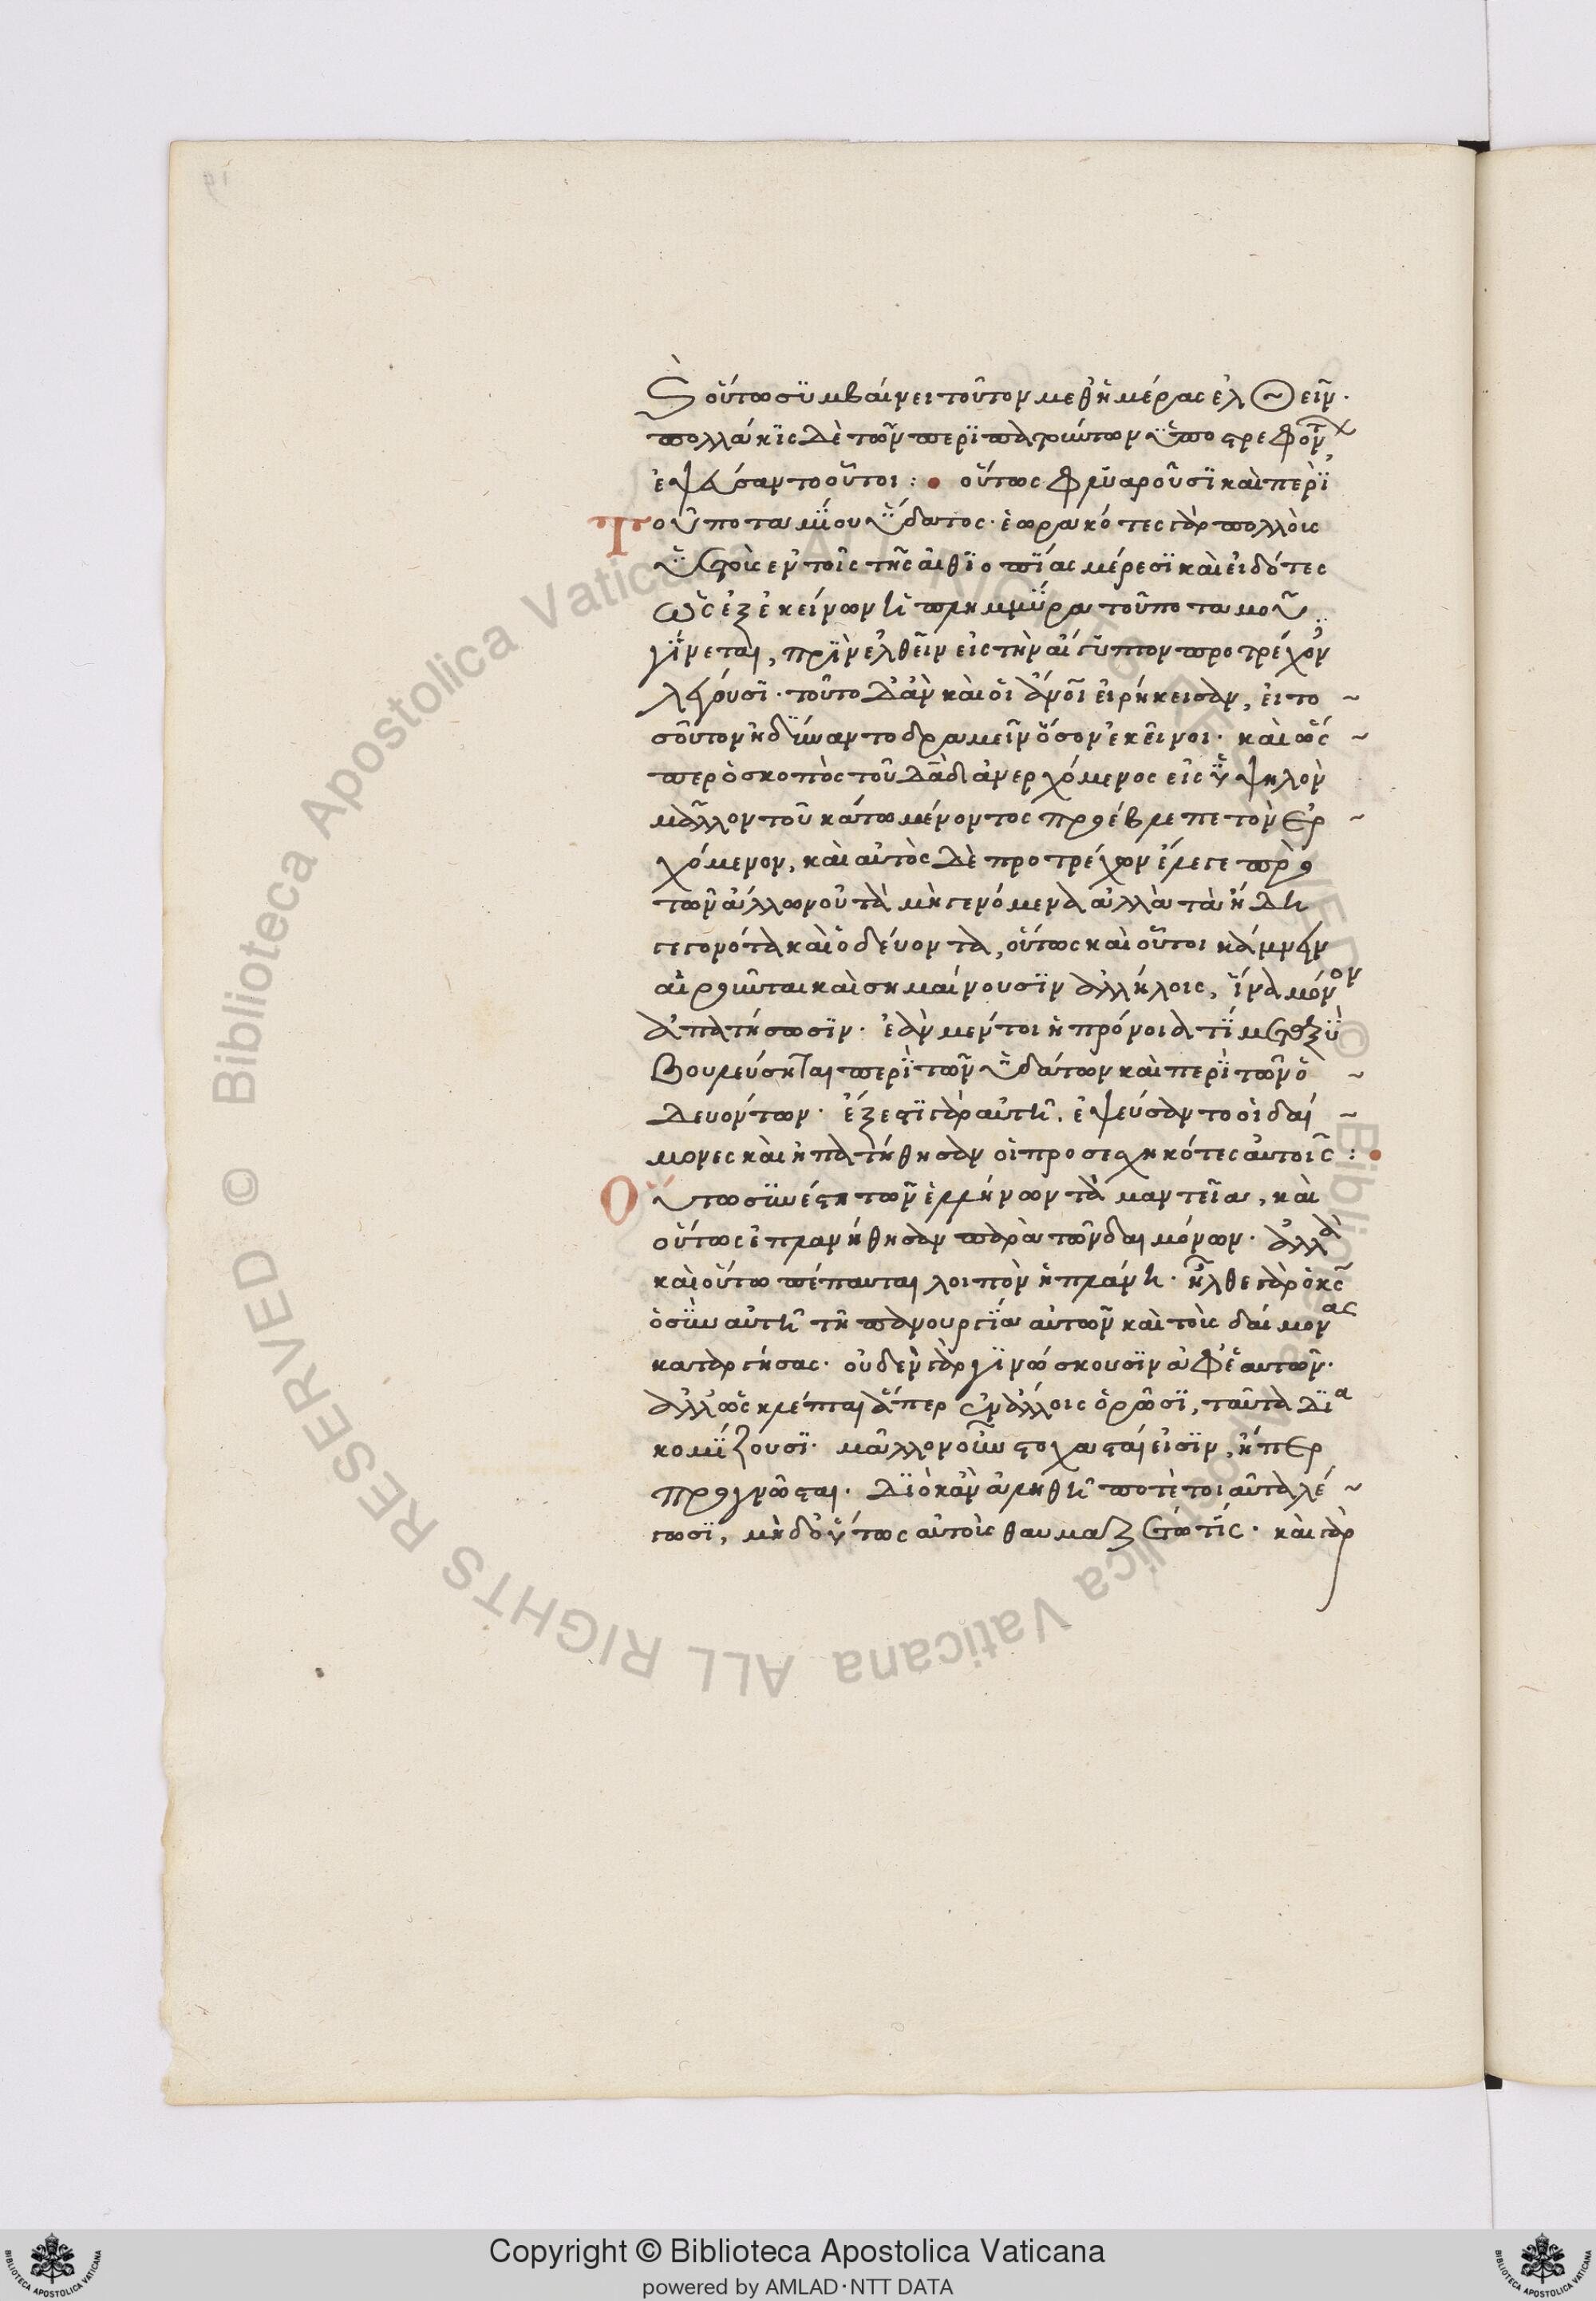 καὶ οὕτω συμβαίνει τοῦτον μεθ' ἡμέρας ἐλθεῖν.
πολλάκϊς δὲ τῶν περϊπατούντων ὑποστρεφόντων,
ἐψεύσαντο οὗτοι : οὕτως φλυαροῦσϊ καὶ περὶ
Τοῦ ποταμΐου ὕδατος. ἑωρακότες γὰρ πολλοὺς
ὑετοὺς ἐν τοῖς τῆς αἰθϊοπΐας μέρεσϊ καὶ εἰδότες
ὡς ἐξ ἐκείνων ἡ πλημμΰρα τοῦ ποταμοῦ
γΐνεται, πρϊν ἐλθεῖν εἰς τὴν αἴγϋπτον προτρέχον
λέγουσϊ. τοῦτο δ' ἂν καὶ οἱ ἄνοι εἰρήκεισαν, εἰ το ~
σοῦτον ἠδΰναντο δραμεῖν ὅσον ἐκεῖνοι. καὶ ὥς ~
περ ὁ σκοπὸς τοῦ δᾶδ ἀνερχόμενος εἰς ὑψηλὸν
μᾶλλον τοῦ κάτω μένοντος προέβλεπε τὸν ἐρ ~
χόμενον, καὶ αὐτὸς δὲ προτρέχων ἔλεγε πρὸ
τῶν ἄλλων οὐ τὰ μὴ γενόμενα ἀλλὰ τὰ ἤδη
γεγονότα καὶ ὁδεύοντα, οὕτως καὶ οὗτοι κάμνειν
αἱροῦνται καὶ σημαίνουσϊν ἀλλήλοις, ἵνα μόνον
ἀπατήσωσϊν. ἐὰν μέντοι ἡ πρόνοια τϊ μεταξὺ
βουλεύσηται περὶ τῶν ὑδάτων καὶ περὶ τῶν ὁ ~
δευόντων. ἔξεστϊ γὰρ αὐτῆ. ἐψεύσαντο οἱ δαί ~
μονες καὶ ἠπατήθησαν οἱ προσεσχηκότες αὐτοῖς :
Οὕτω συνέστη τῶν ἑλλήνων τὰ μαντεῖα, καὶ
οὕτως ἐπλανήθησαν παρὰ τῶν δαιμόνων. ἀλλὰ
καὶ οὕτω πέπαυται λοιπὸν ἡ πλάνη. ἦλθε γὰρ ὁ κς
ὁ σὺν αὐτῆ τῆ πανουργΐα αὐτῶν καὶ τοὺς δαίμονας
καταργήσας. οὐδὲν γὰρ γϊνώσκουσϊν ἀφ' ἑαυτῶν.
ἀλλ' ὡς κλέπται ἅπερ ἐν ἄλλοις ὁρῶσϊ, ταῦτα δϊα
κομΐζουσϊ. μᾶλλον οὖν στοχασταί εἰσϊν, ἤπερ
προγνῶσται. δϊὸ κἂν ἀληθῆ ποτὲ τοιαῦτα λέ ~
γωσϊ, μηδ' οὕτως αὐτοὺς θαυμαζέτω τΐς. καὶ γὰρ